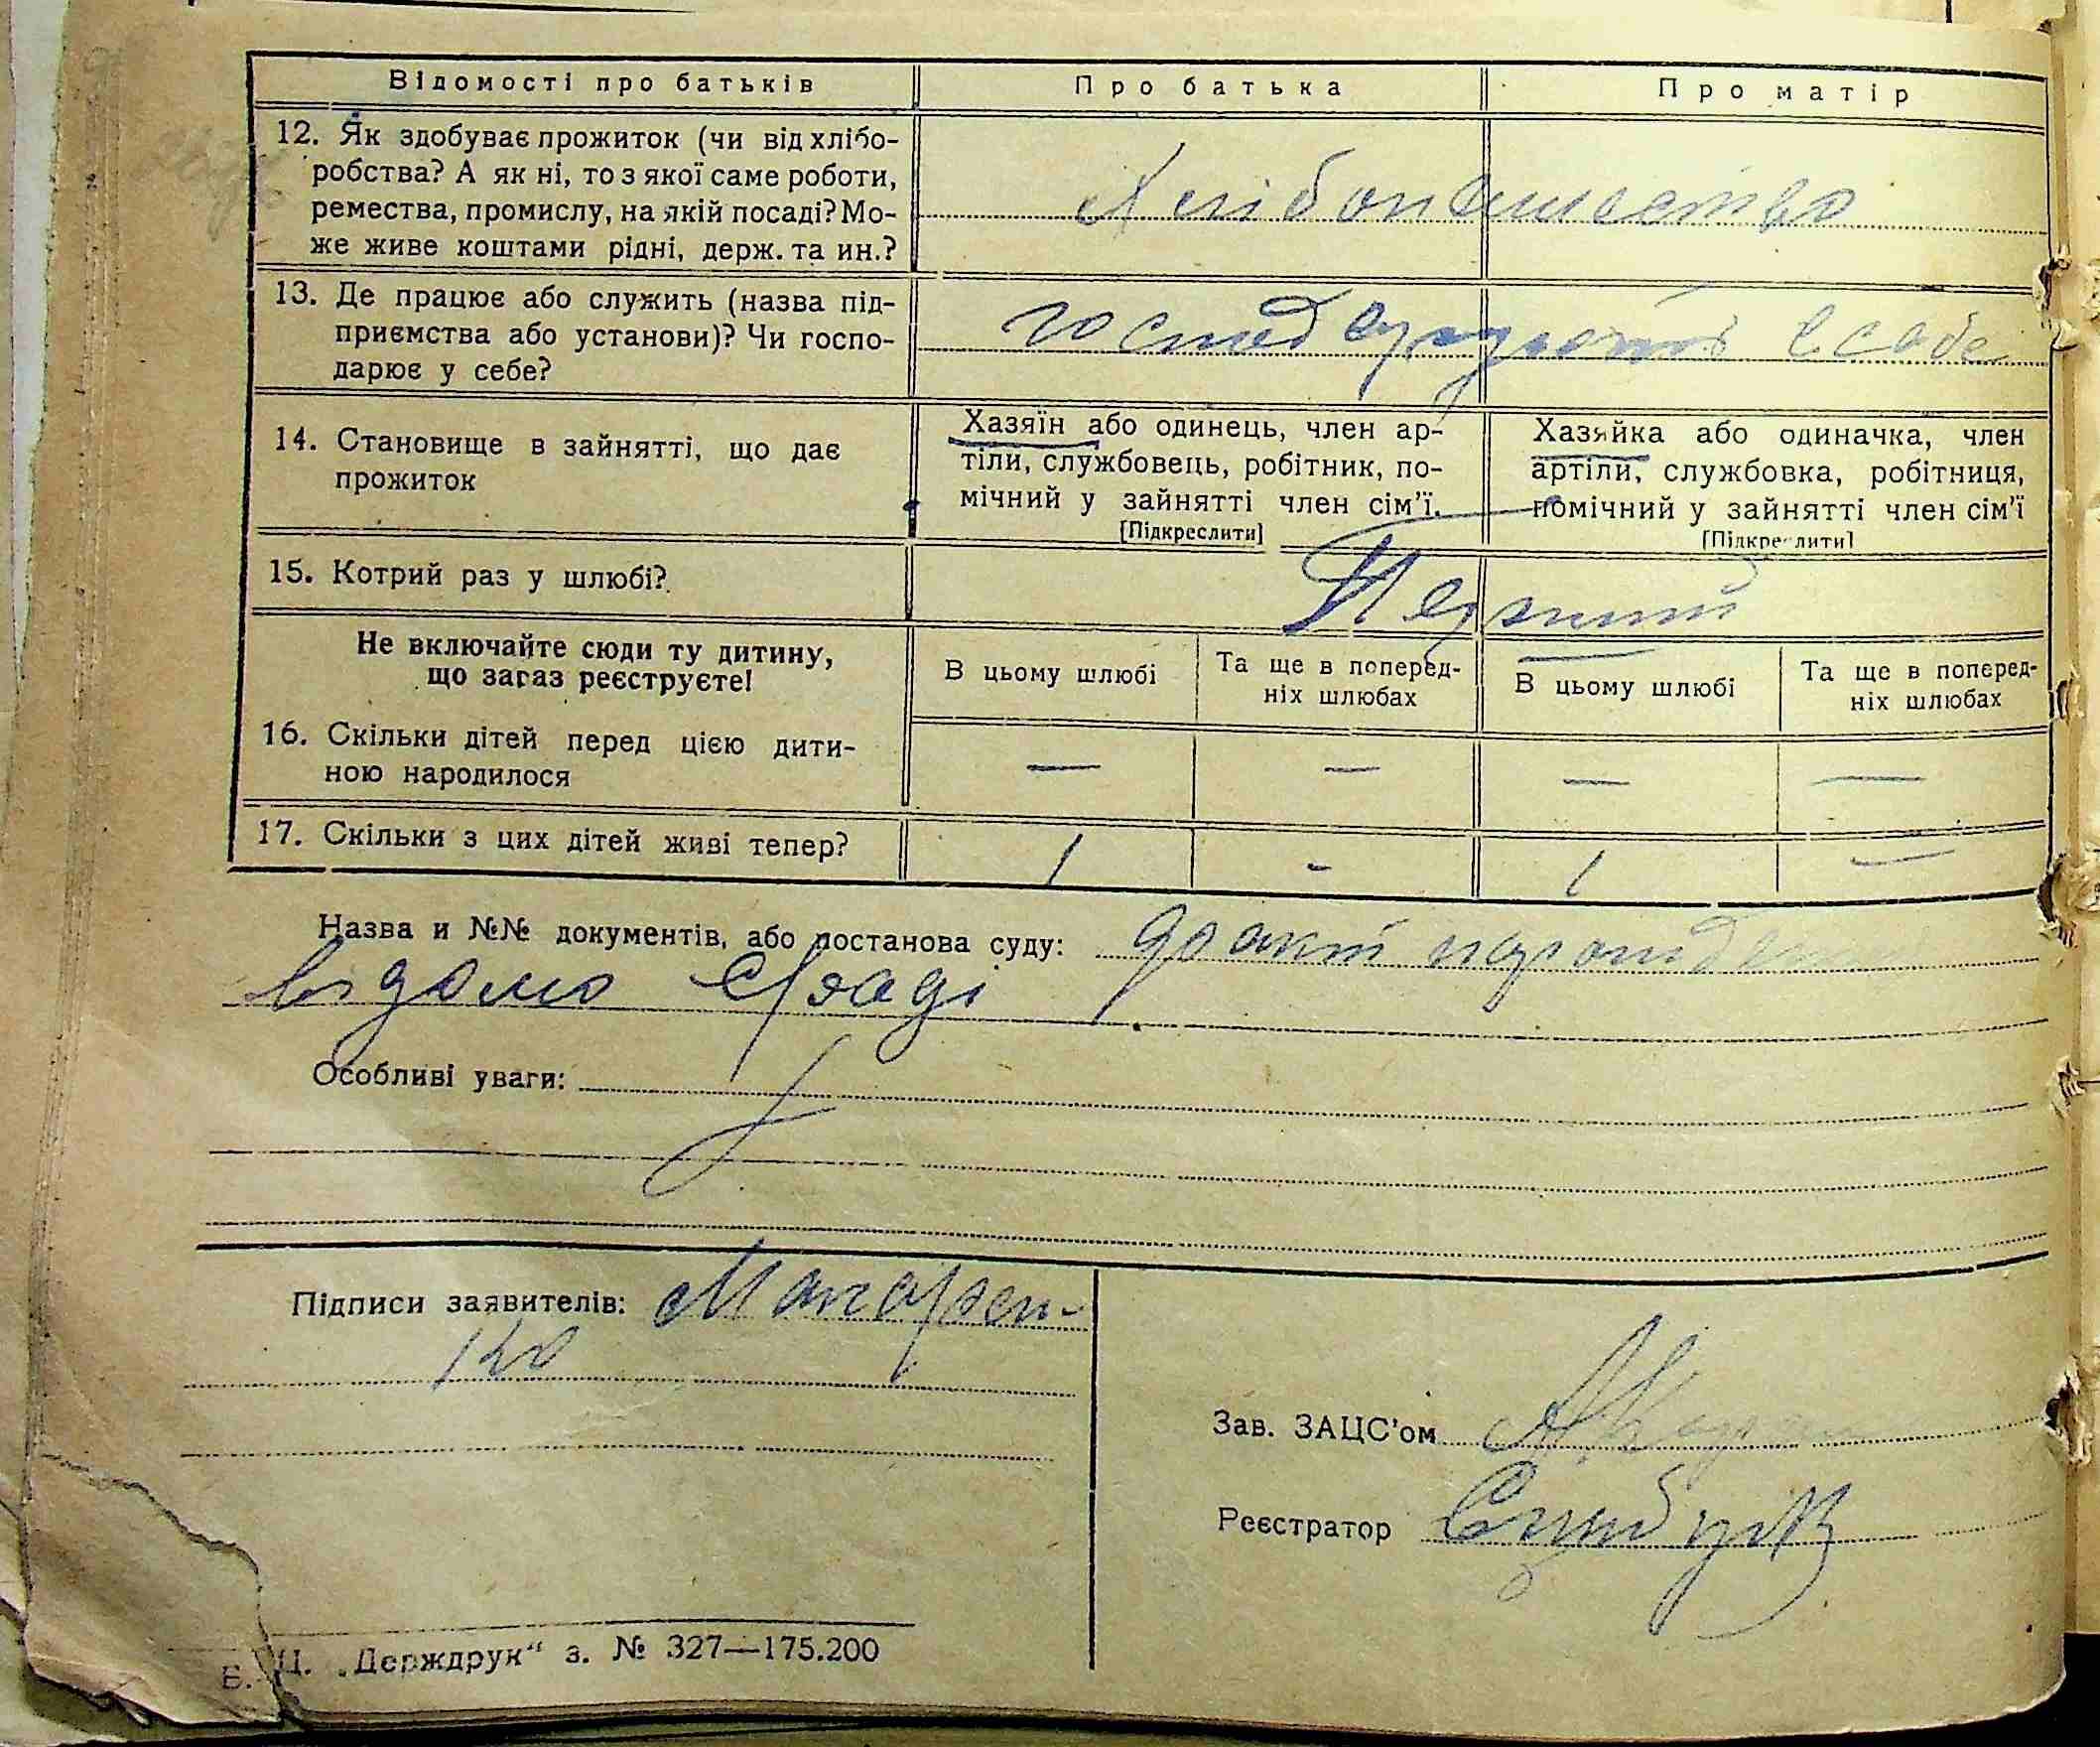 Відомості про батьків
Про батька
Про матір
12. Як здобуває прожиток (чи від хлібо-
робства? А як ні, то з якої саме роботи,
ремества, промислу, на якій посаді? Мо-
же живе коштами рідні, держ. та ин.?
Хлібопашество
13. Де працює або служить (назва під-
приємства або установи)? Чи госпо-
дарює у себе?
господарюють в себе
14. Становище в зайнятті, що дає
прожиток
Хазяїн або одинець, член ар-
тіли, службовець, робітник, по-
мічний у зайнятті член сім'ї.
[Підкреслити]
Хазяйка або одиначка, член
артіли, службовка, робітниця,
помічний у зайнятті член сім'ї
[Підкреслити]
15. Котрий раз у шлюбі?
Первий
Не включайте сюди ту дитину,
що зараз реєструєте!
В цьому шлюбі
Та ще в поперед-
ніх шлюбах
В цьому шлюбі
Та ще в поперед-
ніх шлюбах
16. Скільки дітей перед цією дити-
ною народилося
— — — —
17. Скільки з цих дітей живі тепер?
1 - 1 —
Назва и №№ документів, або постанова суду:
відомо
Особливі уваги:
Підписи заявителів: Макарен-
ко
Зав. ЗАЦС'ом
Реєстратор
Д. „Держдрук“ з. № 327—175.200